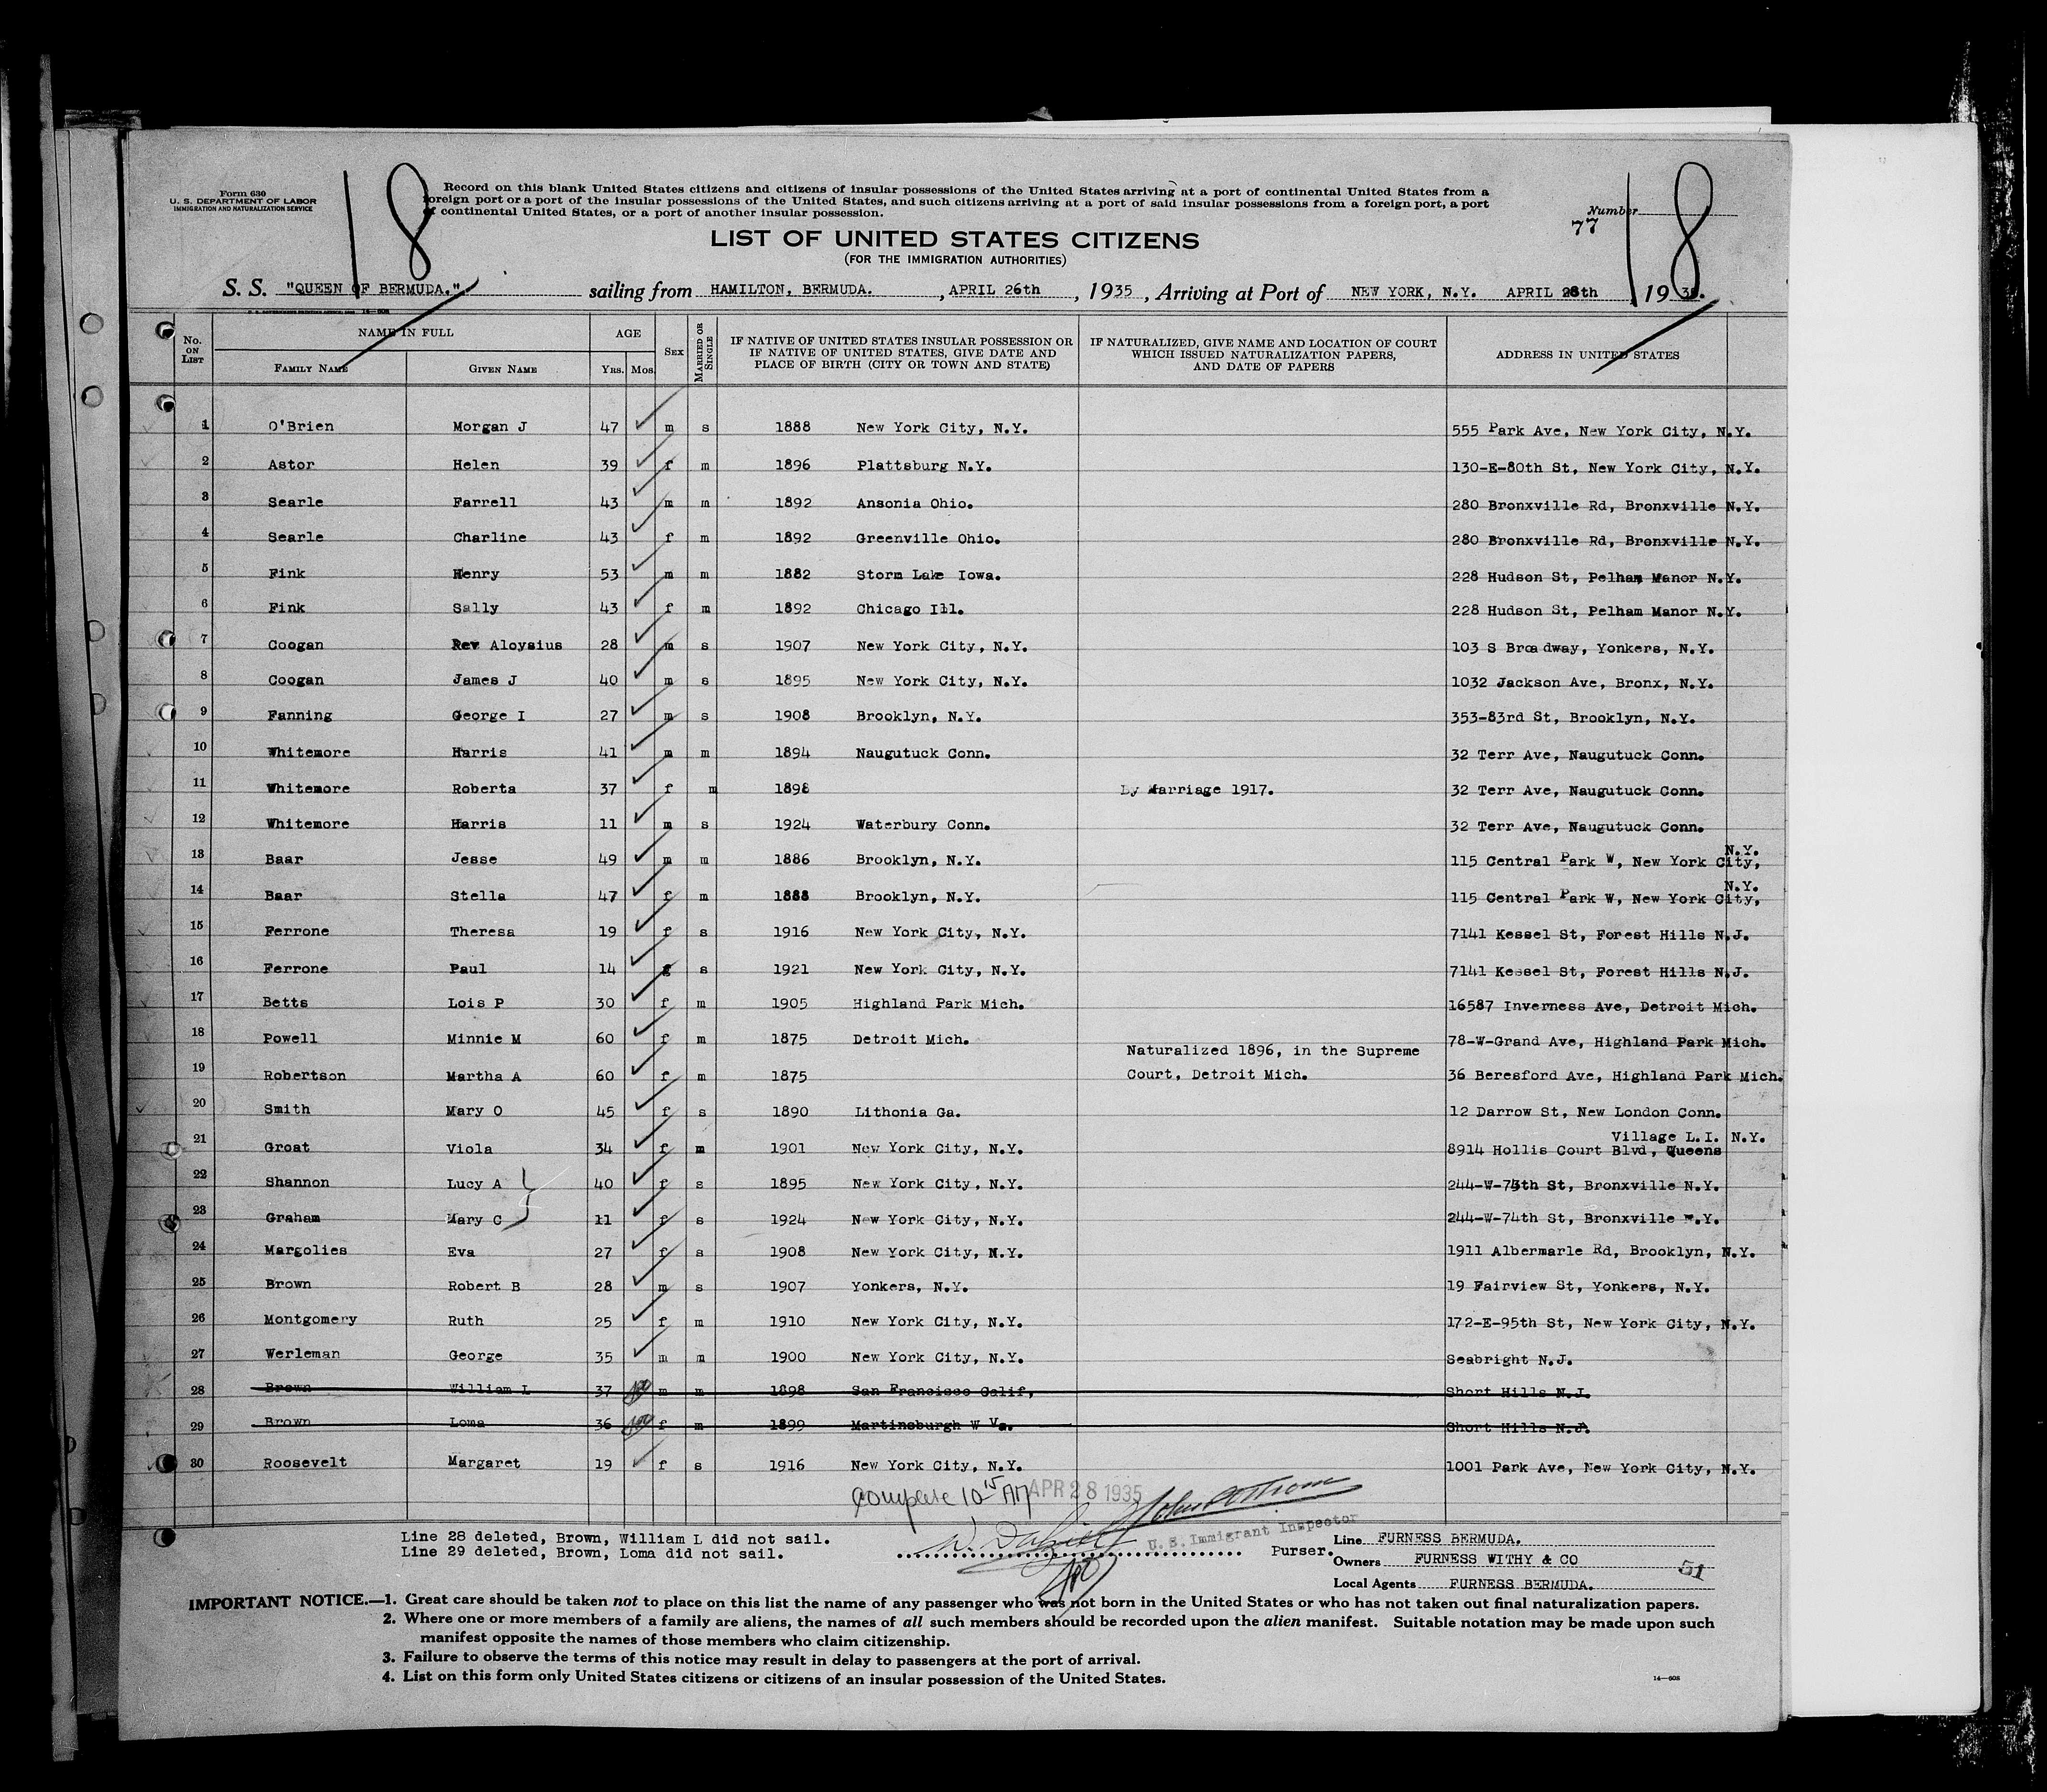 18 18
Form 630
U. S. DEPARTMENT OF LABOR
IMMIGRATION AND NATURALIZATION SERVICE
Record on this blank United States citizens and citizens of insular possessions of the United States arriving at a port of continental United States from a
foreign port or a port of the insular possessions of the United States, and such citizens arriving at a port of said insular possessions from a foreign port, a port
of continental United States, or a port of another insular possession.
Number
77
LIST OF UNITED STATES CITIZENS
(FOR THE IMMIGRATION AUTHORITIES)
S. S. "QUEEN OF BERMUDA." sailing from HAMILTON, BERMUDA. , APRIL 26th , 1935 , Arriving at Port of NEW YORK, N.Y. APRIL 28th 1935.
No. ON LIST NAME IN FULL AGE SEX MARRIED OR SINGLE IF NATIVE OF UNITED STATES INSULAR POSSESSION OR IF NATIVE OF UNITED STATES, GIVE DATE AND PLACE OF BIRTH (CITY OR TOWN AND STATE) IF NATURALIZED, GIVE NAME AND LOCATION OF COURT WHICH ISSUED NATURALIZATION PAPERS, AND DATE OF PAPERS ADDRESS IN UNITED STATES
FAMILY NAME GIVEN NAME YRS. MOS.
1 O'Brien Morgan J 47 m s 1888 New York City, N.Y. 555 Park Ave, New York City, N.Y.
2 Astor Helen 39 f m 1896 Plattsburg N.Y. 130-E-80th St, New York City, N.Y.
3 Searle Farrell 43 m m 1892 Ansonia Ohio. 280 Bronxville Rd, Bronxville N.Y.
4 Searle Charline 43 f m 1892 Greenville Ohio. 280 Bronxville Rd, Bronxville N.Y.
5 Fink Henry 53 m m 1882 Storm Lake Iowa. 228 Hudson St, Pelham Manor N.Y.
6 Fink Sally 43 f m 1892 Chicago Ill. 228 Hudson St, Pelham Manor N.Y.
7 Coogan Rev Aloysius 28 m s 1907 New York City, N.Y. 103 S Broadway, Yonkers, N.Y.
8 Coogan James J 40 m s 1895 New York City, N.Y. 1032 Jackson Ave, Bronx, N.Y.
9 Fanning George I 27 m s 1908 Brooklyn, N.Y. 353-83rd St, Brooklyn, N.Y.
10 Whitemore Harris 41 m m 1894 Naugutuck Conn. 32 Terr Ave, Naugutuck Conn.
11 Whitemore Roberta 37 f m 1898 By Marriage 1917. 32 Terr Ave, Naugutuck Conn.
12 Whitemore Harris 11 m s 1924 Waterbury Conn. 32 Terr Ave, Naugutuck Conn.
13 Baar Jesse 49 m m 1886 Brooklyn, N.Y. 115 Central Park W, New York City, N.Y.
14 Baar Stella 47 f m 1888 Brooklyn, N.Y. 115 Central Park W, New York City, N.Y.
15 Ferrone Theresa 19 f s 1916 New York City, N.Y. 7141 Kessel St, Forest Hills N.J.
16 Ferrone Paul 14 s 1921 New York City, N.Y. 7141 Kessel St, Forest Hills N.J.
17 Betts Lois P 30 f m 1905 Highland Park Mich. 16587 Inverness Ave, Detroit Mich.
18 Powell Minnie M 60 f m 1875 Detroit Mich. 78-W-Grand Ave, Highland Park Mich.
19 Robertson Martha A 60 f m 1875 Naturalized 1896, in the Supreme Court, Detroit Mich. 36 Beresford Ave, Highland Park Mich.
20 Smith Mary O 45 f s 1890 Lithonia Ga. 12 Darrow St, New London Conn.
21 Groat Viola 34 f m 1901 New York City, N.Y. 8914 Hollis Court Blvd, Queens Village L.I. N.Y.
22 Shannon Lucy A 40 f s 1895 New York City, N.Y. 244-W-74th St, Bronxville N.Y.
23 Graham Mary C 11 f s 1924 New York City, N.Y. 244-W-74th St, Bronxville N.Y.
24 Margolies Eva 27 f s 1908 New York City, N.Y. 1911 Albermarle Rd, Brooklyn, N.Y.
25 Brown Robert B 28 m s 1907 Yonkers, N.Y. 19 Fairview St, Yonkers, N.Y.
26 Montgomery Ruth 25 f m 1910 New York City, N.Y. 172-E-95th St, New York City, N.Y.
27 Werleman George 35 m m 1900 New York City, N.Y. Seabright N.J.
28 Brown William L 37 m m 1898 San Francisco Calif, Short Hills N.J.
29 Brown Loma 36 f m 1899 Martinsburgh W Va. Short Hills N.J.
30 Roosevelt Margaret 19 f s 1916 New York City, N.Y. 1001 Park Ave, New York City, N.Y.
Complete 10 15 AM APR 28 1935
Line 28 deleted, Brown, William L did not sail.
Line 29 deleted, Brown, Loma did not sail.
U. S. Immigrant Inspector
Purser.
Line FURNESS BERMUDA.
Owners FURNESS WITHY & CO
51
Local Agents FURNESS BERMUDA.
IMPORTANT NOTICE.—1. Great care should be taken not to place on this list the name of any passenger who was not born in the United States or who has not taken out final naturalization papers.
2. Where one or more members of a family are aliens, the names of all such members should be recorded upon the alien manifest. Suitable notation may be made upon such
manifest opposite the names of those members who claim citizenship.
3. Failure to observe the terms of this notice may result in delay to passengers at the port of arrival.
4. List on this form only United States citizens or citizens of an insular possession of the United States.
14—608